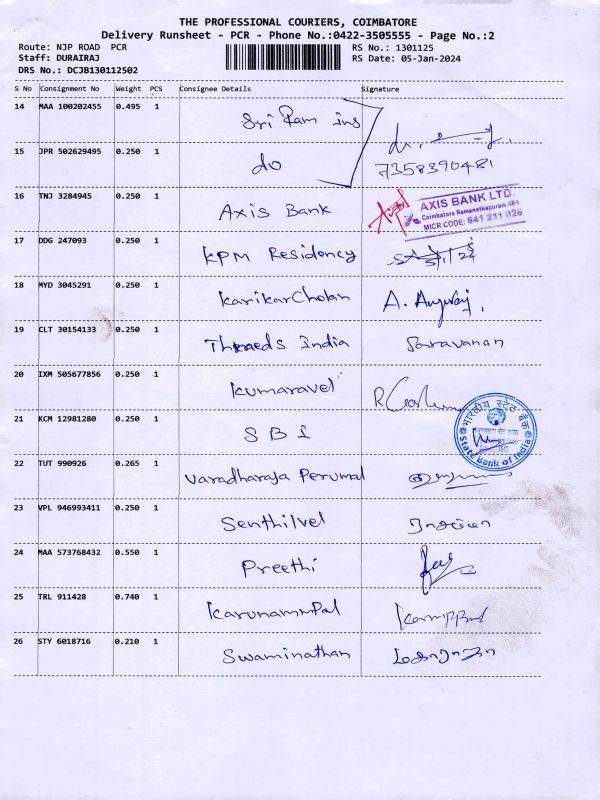 THE PROFESSIONAL COURIERS, COIMBATORE
Delivery Runsheet - PCR - Phone No.:0422-3505555 - Page No.:2
Route: NJP ROAD PCR RS No.: 1301125
Staff: DURAIRAJ RS Date: 05-Jan-2024
DRS No.: DCJB130112502
S No Consignment No Weight PCS Consignee Details Signature
14 MAA 100202455 0.495 1 Sri Ram ins
15 JPR 502629495 0.250 1 do 7358390481
16 TNJ 3284945 0.250 1 Axis Bank
AXIS BANK LTD.
Coimbatore Ramanathapuram-641
MICR CODE: 641 211 026
17 DDG 247093 0.250 1 KPM Residency
18 MYD 3045291 0.250 1 KarikarCholan
19 CLT 30154133 0.250 1 Threads India Saravanan
20 IXM 505677856 0.250 1 Kumaravel
21 KCM 12981280 0.250 1 SBI
भारतीय स्टेट बैंक
State Bank of India
22 TUT 990926 0.265 1 Varadharaja Perumal
23 VPL 946993411 0.250 1 Senthilvel
24 MAA 573768432 0.550 1 Preethi
25 TRL 911428 0.740 1 Karunammpal
26 STY 6018716 0.210 1 Swaminathan